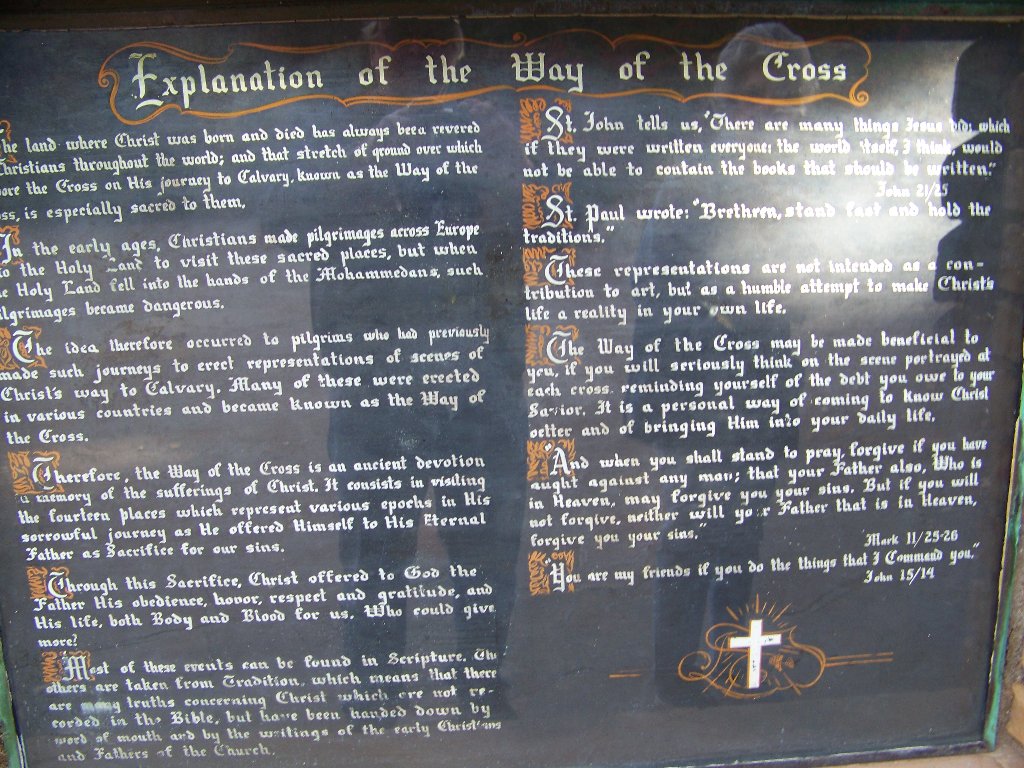 Explanation of the Way of the Cross
he land where Christ was born and died has always been revered
Christians throughout the world; and that stretch of ground over which
ore the Cross on His journey to Calvary, known as the Way of the
ss, is especially sacred to them.
In the early ages, Christians made pilgrimages across Europe
to the Holy Land to visit these sacred places, but when
e Holy Land fell into the hands of the Mohammedans, such
ilgrimages became dangerous.
The idea therefore occurred to pilgrims who had previously
made such journeys to erect representations of scenes of
Christ's way to Calvary. Many of these were erected
in various countries and became known as the Way of
the Cross.
Therefore, the Way of the Cross is an ancient devotion
a memory of the sufferings of Christ. It consists in visiting
the fourteen places which represent various epochs in His
sorrowful journey as He offered Himself to His Eternal
Father as Sacrifice for our sins.
Through this Sacrifice, Christ offered to God the
Father His obedience, honor, respect and gratitude, and
His life, both Body and Blood for us. Who could give
more?
Most of these events can be found in Scripture. The
others are taken from Tradition, which means that there
are many truths concerning Christ which are not re-
corded in the Bible, but have been handed down by
word of mouth and by the writings of the early Christians
and Fathers of the Church.
St. John tells us, "There are many things Jesus did, which
if they were written everyone; the world itself, I think, would
not be able to contain the books that should be written."
John 21/25
St. Paul wrote: "Brethren, stand fast and hold the
traditions."
These representations are not intended as a con-
tribution to art, but as a humble attempt to make Christ's
life a reality in your own life.
The Way of the Cross may be made beneficial to
you, if you will seriously think on the scene portrayed at
each cross, reminding yourself of the debt you owe to your
Savior. It is a personal way of coming to know Christ
better and of bringing Him into your daily life.
"And when you shall stand to pray, forgive if you have
aught against any man; that your Father also, Who is
in Heaven, may forgive you your sins. But if you will
not forgive, neither will your Father that is in Heaven,
forgive you your sins."
Mark 11/25-26
"You are my friends if you do the things that I Command you."
John 15/14